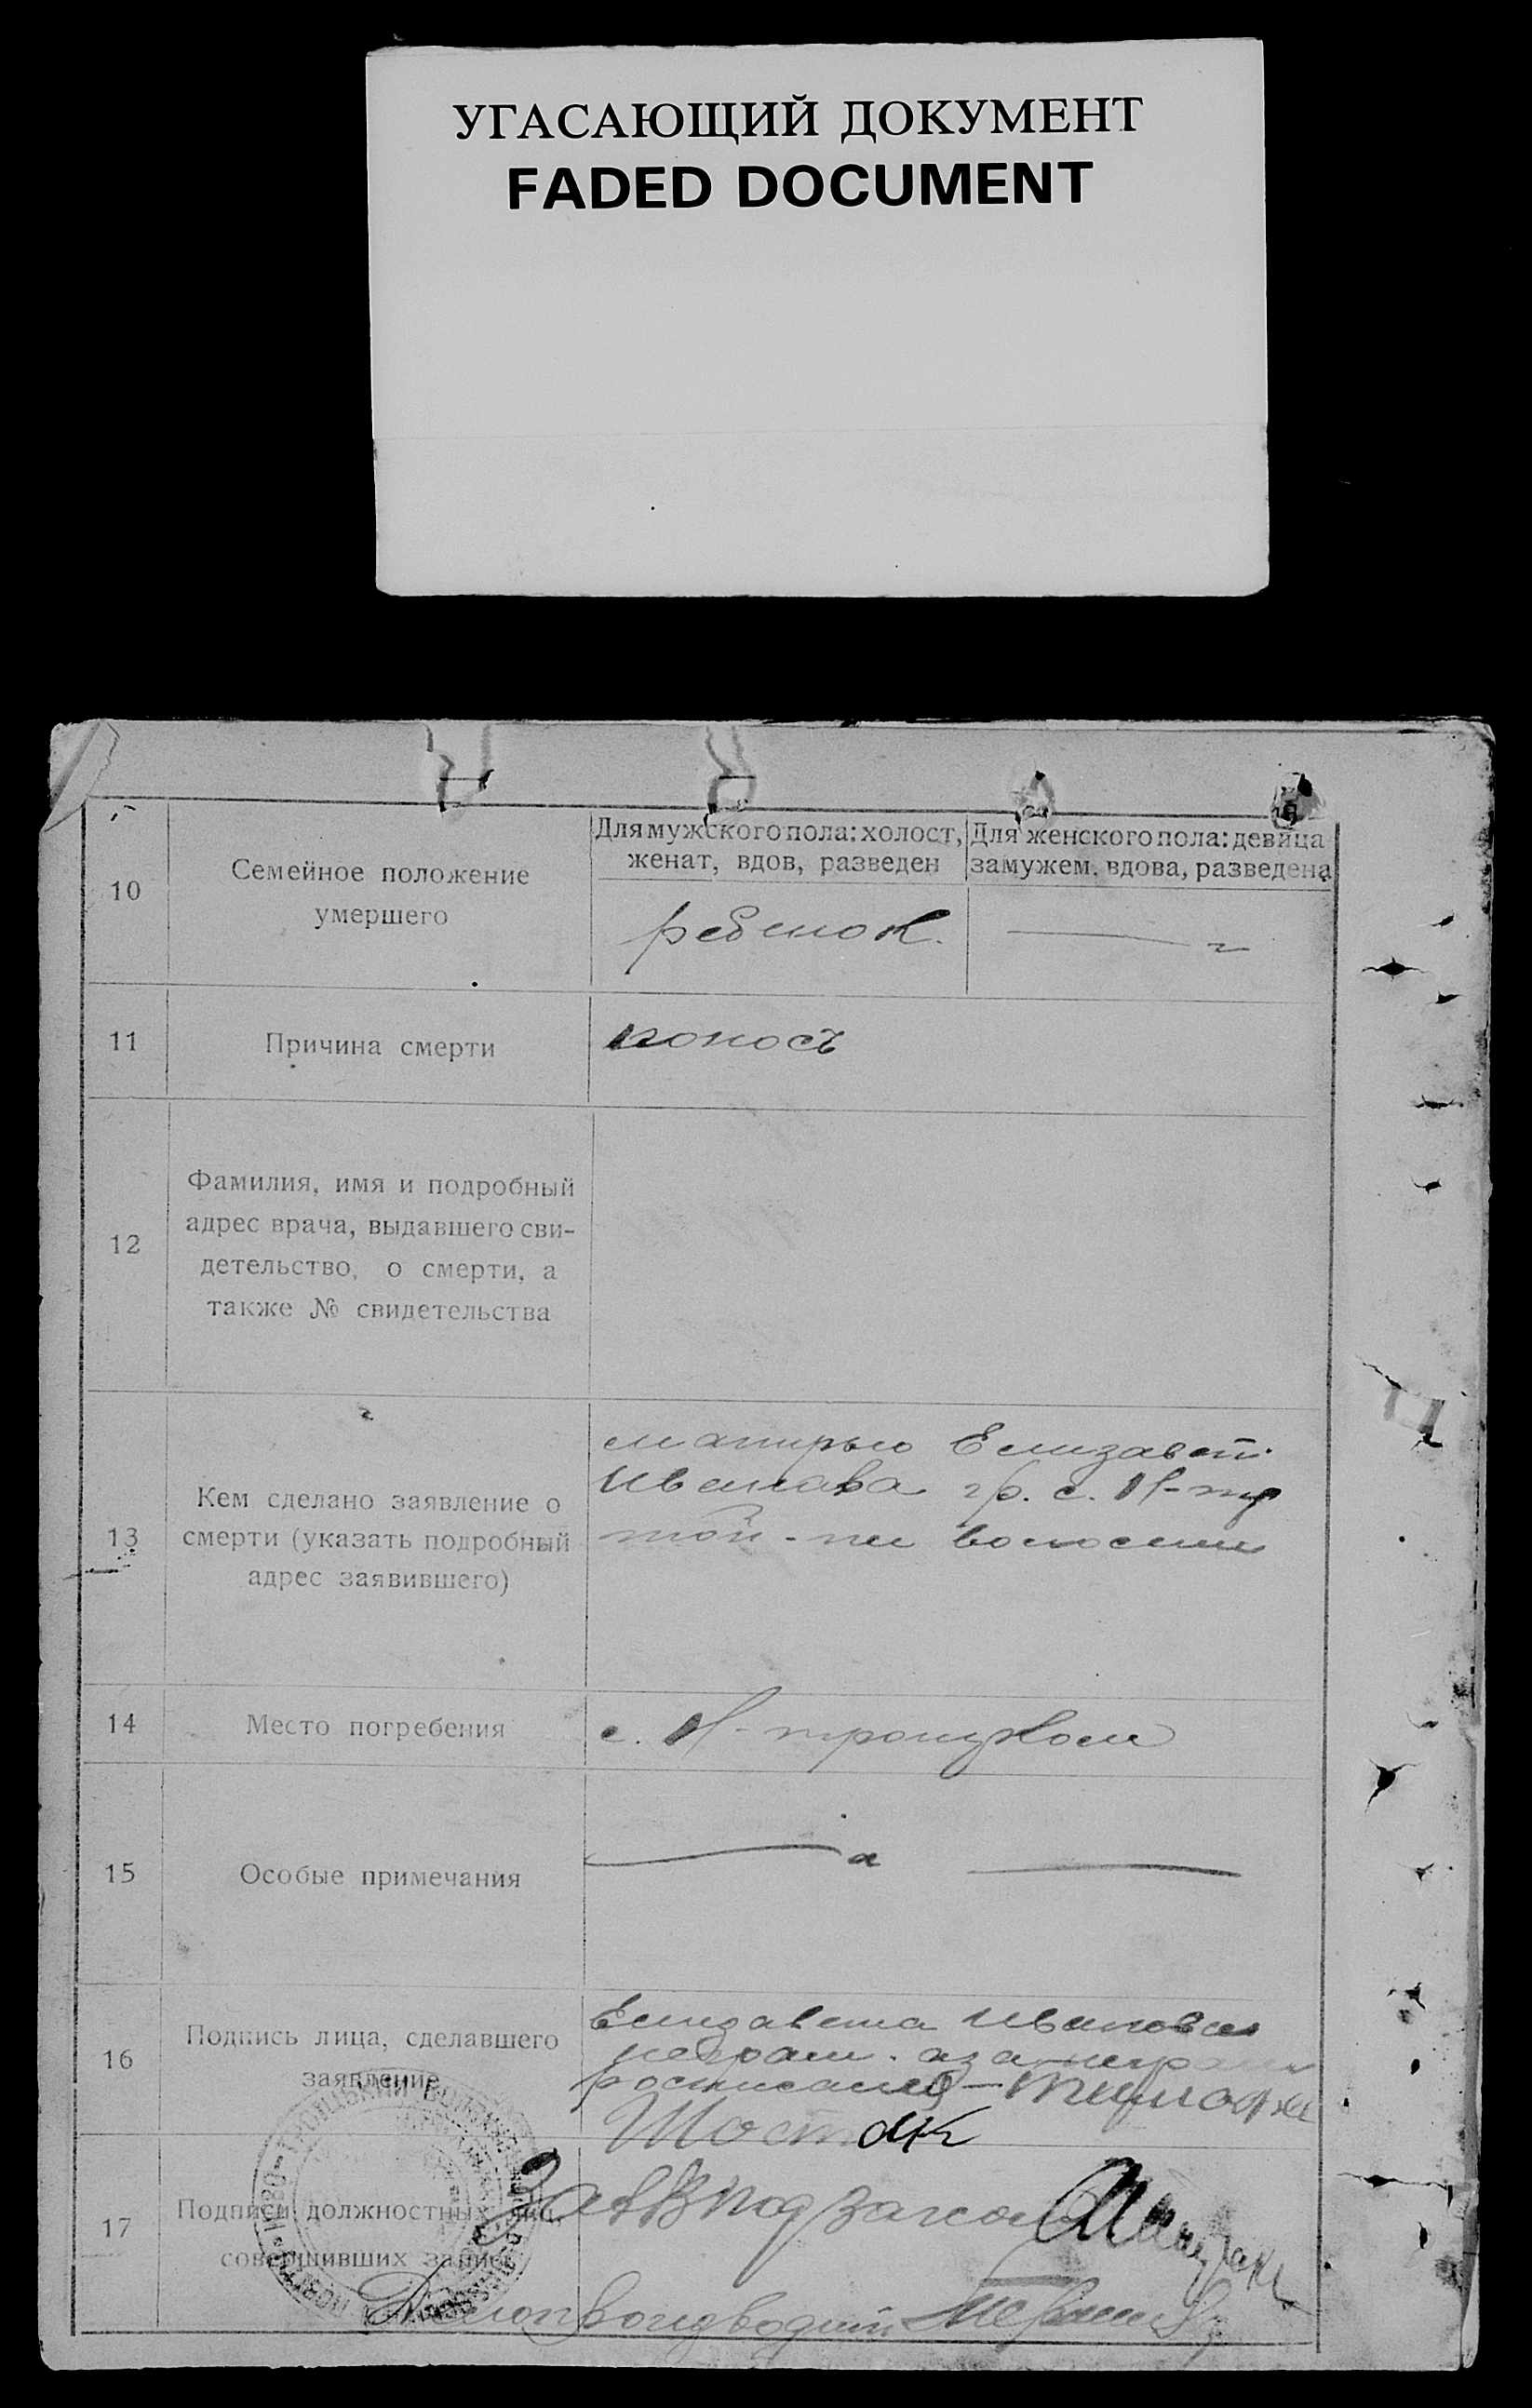 УГАСАЮЩИЙ ДОКУМЕНТ
FADED DOCUMENT
10
Семейное положение
умершего
Для мужского пола: холост,
женат, вдов, разведен
Для женского пола: девица
замужем, вдова, разведена
ребенок.
11
Причина смерти
поносъ
12
Фамилия, имя и подробный
адрес врача, выдавшего сви-
детельство, о смерти, а
также № свидетельства
13
Кем сделано заявление о
смерти (указать подробный
адрес заявившего)
матирью Елизавет.
Иванова гр. с. Н-тр
той-же волости
14
Место погребения
с. Н-троицком
15
Особые примечания
16
Подпись лица, сделавшего
заявление
Елизавета Иванова
неграм. а за неграм
росписался
Шостак
17
Подписи должностных лиц,
совершивших запись
Зав
Делопроизводит